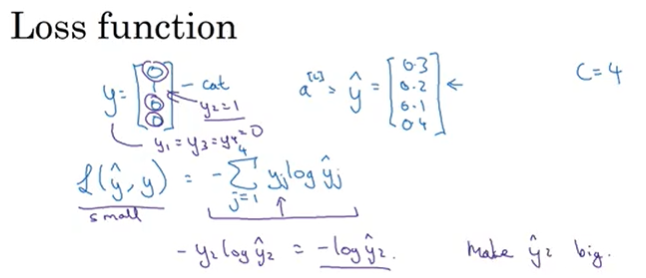 Loss function
y = [0 1 0 0] - cat
y₂ = 1
y₁ = y₃ = y₄ = 0
a^[L] = ŷ = [0.3 0.2 0.1 0.4] ←
C = 4
L(ŷ, y) = - ∑_{j=1}^{4} yⱼ log ŷⱼ
small
- y₂ log ŷ₂ = - log ŷ₂. Make ŷ₂ big.